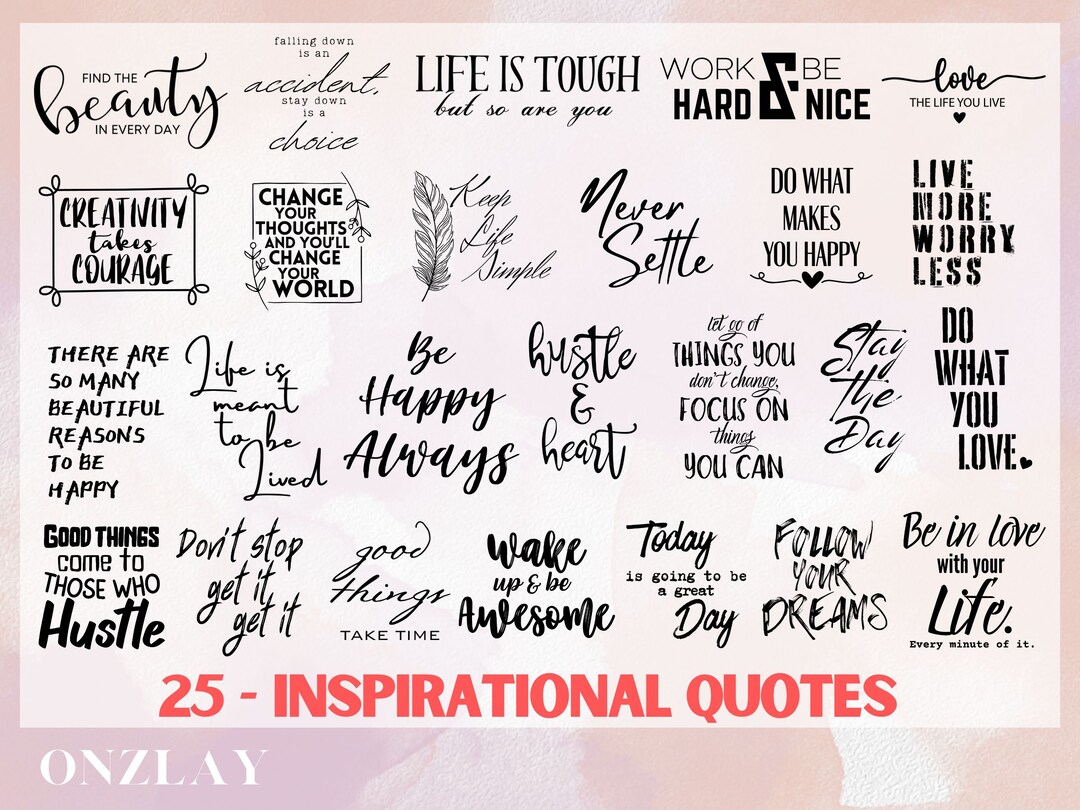 FIND THE
beauty
IN EVERY DAY
falling down
is an
accident,
stay down
is a
choice
LIFE IS TOUGH
but so are you
WORK & BE
HARD NICE
love
THE LIFE YOU LIVE
CREATIVITY
takes
COURAGE
CHANGE
YOUR
THOUGHTS
AND YOU'LL
CHANGE
YOUR
WORLD
Keep
Life
Simple
Never
Settle
DO WHAT
MAKES
YOU HAPPY
LIVE
MORE
WORRY
LESS
THERE ARE
SO MANY
BEAUTIFUL
REASONS
TO BE
HAPPY
Life is
meant
to be
Lived
Be
Happy
Always
hustle
&
heart
let go of
THINGS YOU
don't change,
FOCUS ON
things
YOU CAN
Stay
the
Day
DO
WHAT
YOU
LOVE.
GOOD THINGS
come to
THOSE WHO
Hustle
Don't stop
get it
get it
good
things
TAKE TIME
wake
up & be
Awesome
Today
is going to be
a great
Day
FOLLOW
YOUR
DREAMS
Be in love
with your
Life.
Every minute of it.
25 - INSPIRATIONAL QUOTES
ONZLAY